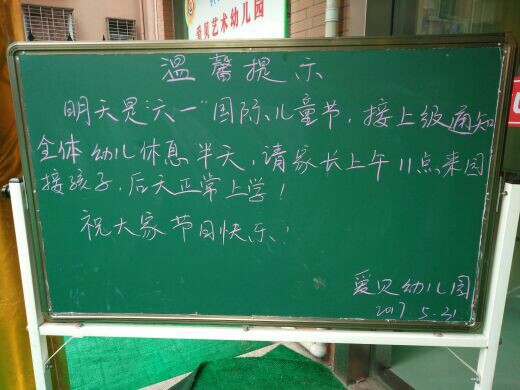 爱贝艺术幼儿园
温馨提示
明天是"六一"国际儿童节，接上级通知
全体幼儿休息半天，请家长上午11点来园
接孩子，后天正常上学！
祝大家节日快乐！
爱贝幼儿园
2017.5.31